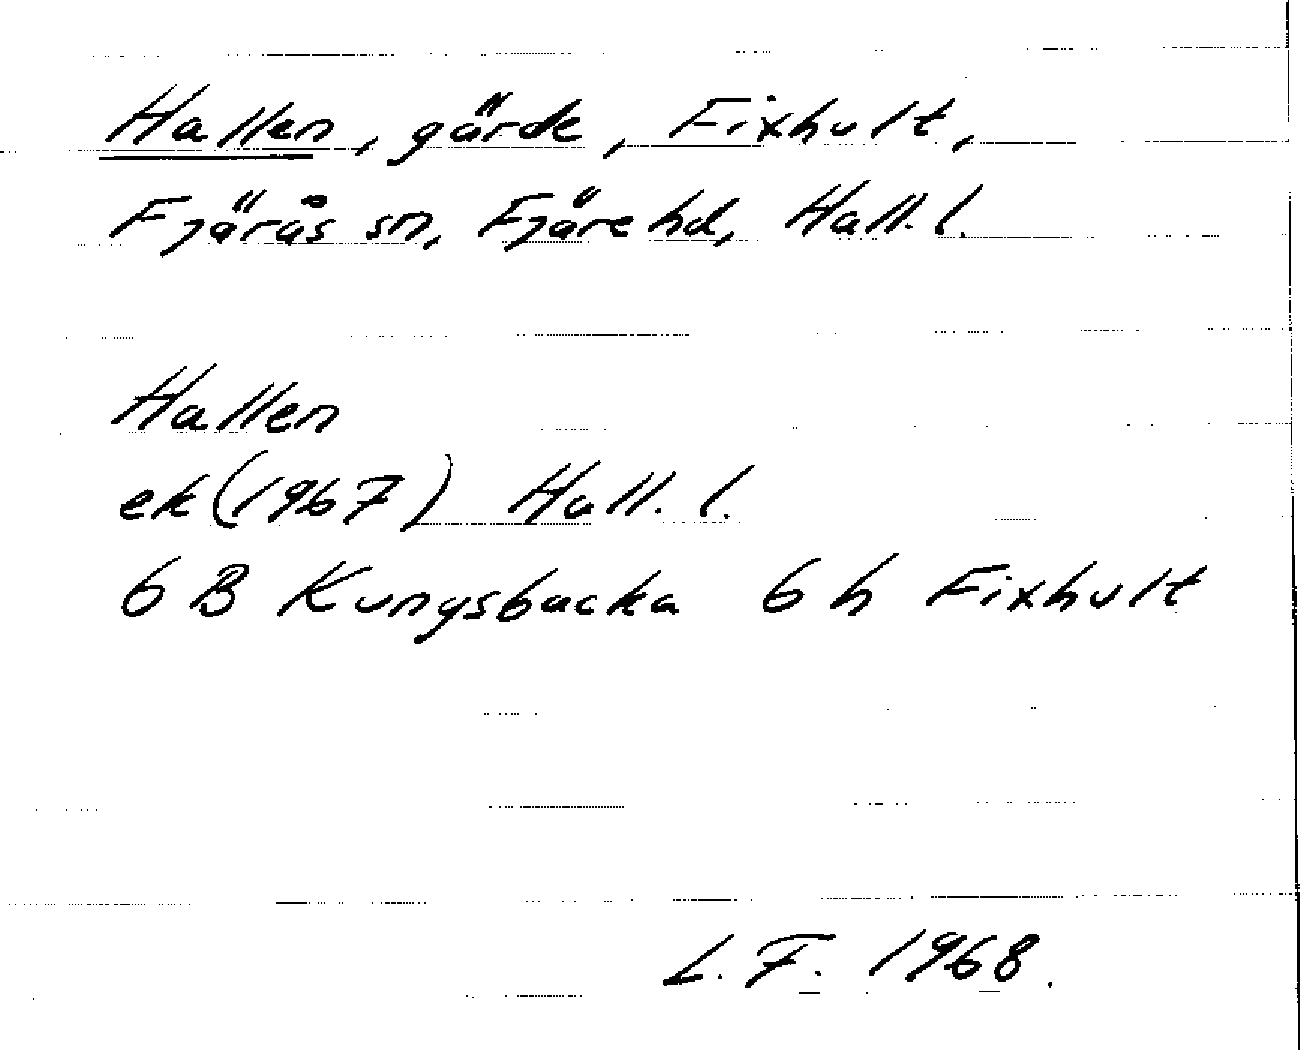 Hallen, gärde, Fixhult,
Fjärås sn, Fjäre hd, Hall. l.
Hallen
ek (1967) Hall. l.
6 B Kungsbacka 6 h Fixhult
L. F. 1968.